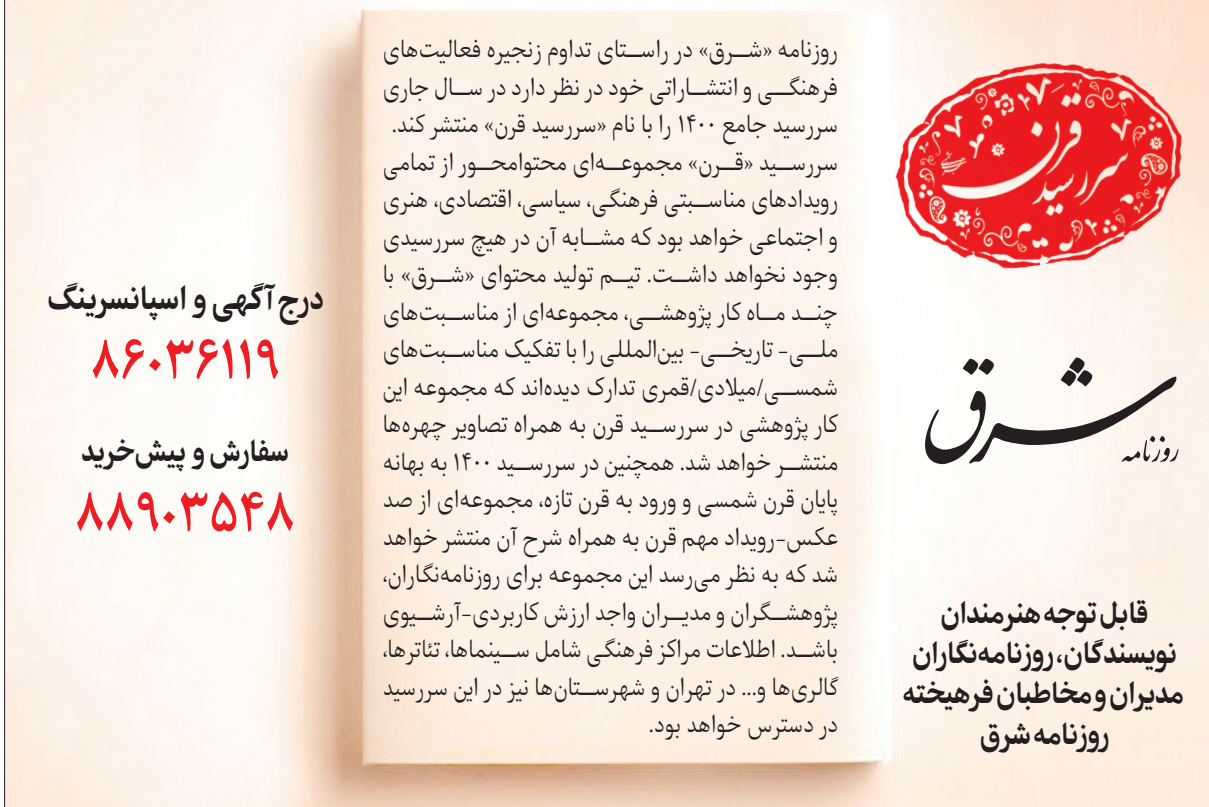 سررسید
قرن
روزنامه
شرق
قابل توجه هنرمندان
نویسندگان، روزنامه‌نگاران
مدیران و مخاطبان فرهیخته
روزنامه شرق
روزنامه «شـرق» در راستای تداوم زنجیره فعالیت‌های
فرهنگـی و انتشـاراتی خود در نظر دارد در سـال جاری
سررسید جامع ۱۴۰۰ را با نام «سررسید قرن» منتشر کند.
سررسـید «قـرن» مجموعـه‌ای محتوامحـور از تمامی
رویدادهای مناسـبتی فرهنگی، سیاسی، اقتصادی، هنری
و اجتماعی خواهد بود که مشـابه آن در هیچ سررسیدی
وجود نخواهد داشـت. تیـم تولید محتوای «شـرق» با
چنـد مـاه کار پژوهشـی، مجموعه‌ای از مناسـبت‌های
ملـی- تاریخـی- بین‌المللی را با تفکیک مناسـبت‌های
شمسـی/میلادی/قمری تدارک دیده‌اند که مجموعه این
کار پژوهشی در سررسـید قرن به همراه تصاویر چهره‌ها
منتشـر خواهد شد. همچنین در سررسـید ۱۴۰۰ به بهانه
پایان قرن شمسی و ورود به قرن تازه، مجموعه‌ای از صد
عکس-رویداد مهم قرن به همراه شرح آن منتشر خواهد
شد که به نظر می‌رسد این مجموعه برای روزنامه‌نگاران،
پژوهشـگران و مدیـران واجد ارزش کاربردی-آرشـیوی
باشـد. اطلاعات مراکز فرهنگی شامل سـینماها، تئاترها،
گالری‌ها و... در تهران و شهرسـتان‌ها نیز در این سررسید
در دسترس خواهد بود.
درج آگهی و اسپانسرینگ
۸۶۰۳۶۱۱۹
سفارش و پیش‌خرید
۸۸۹۰۳۵۴۸